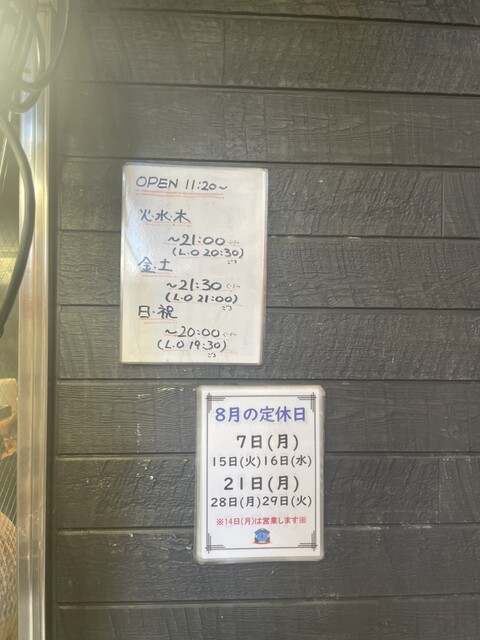 OPEN 11:20～
火・水・木
～21:00
(L.O 20:30)
金・土
～21:30
(L.O 21:00)
日・祝
～20:00
(L.O 19:30)
8月の定休日
7日(月)
15日(火)16日(水)
21日(月)
28日(月)29日(火)
※14日(月)は営業します※